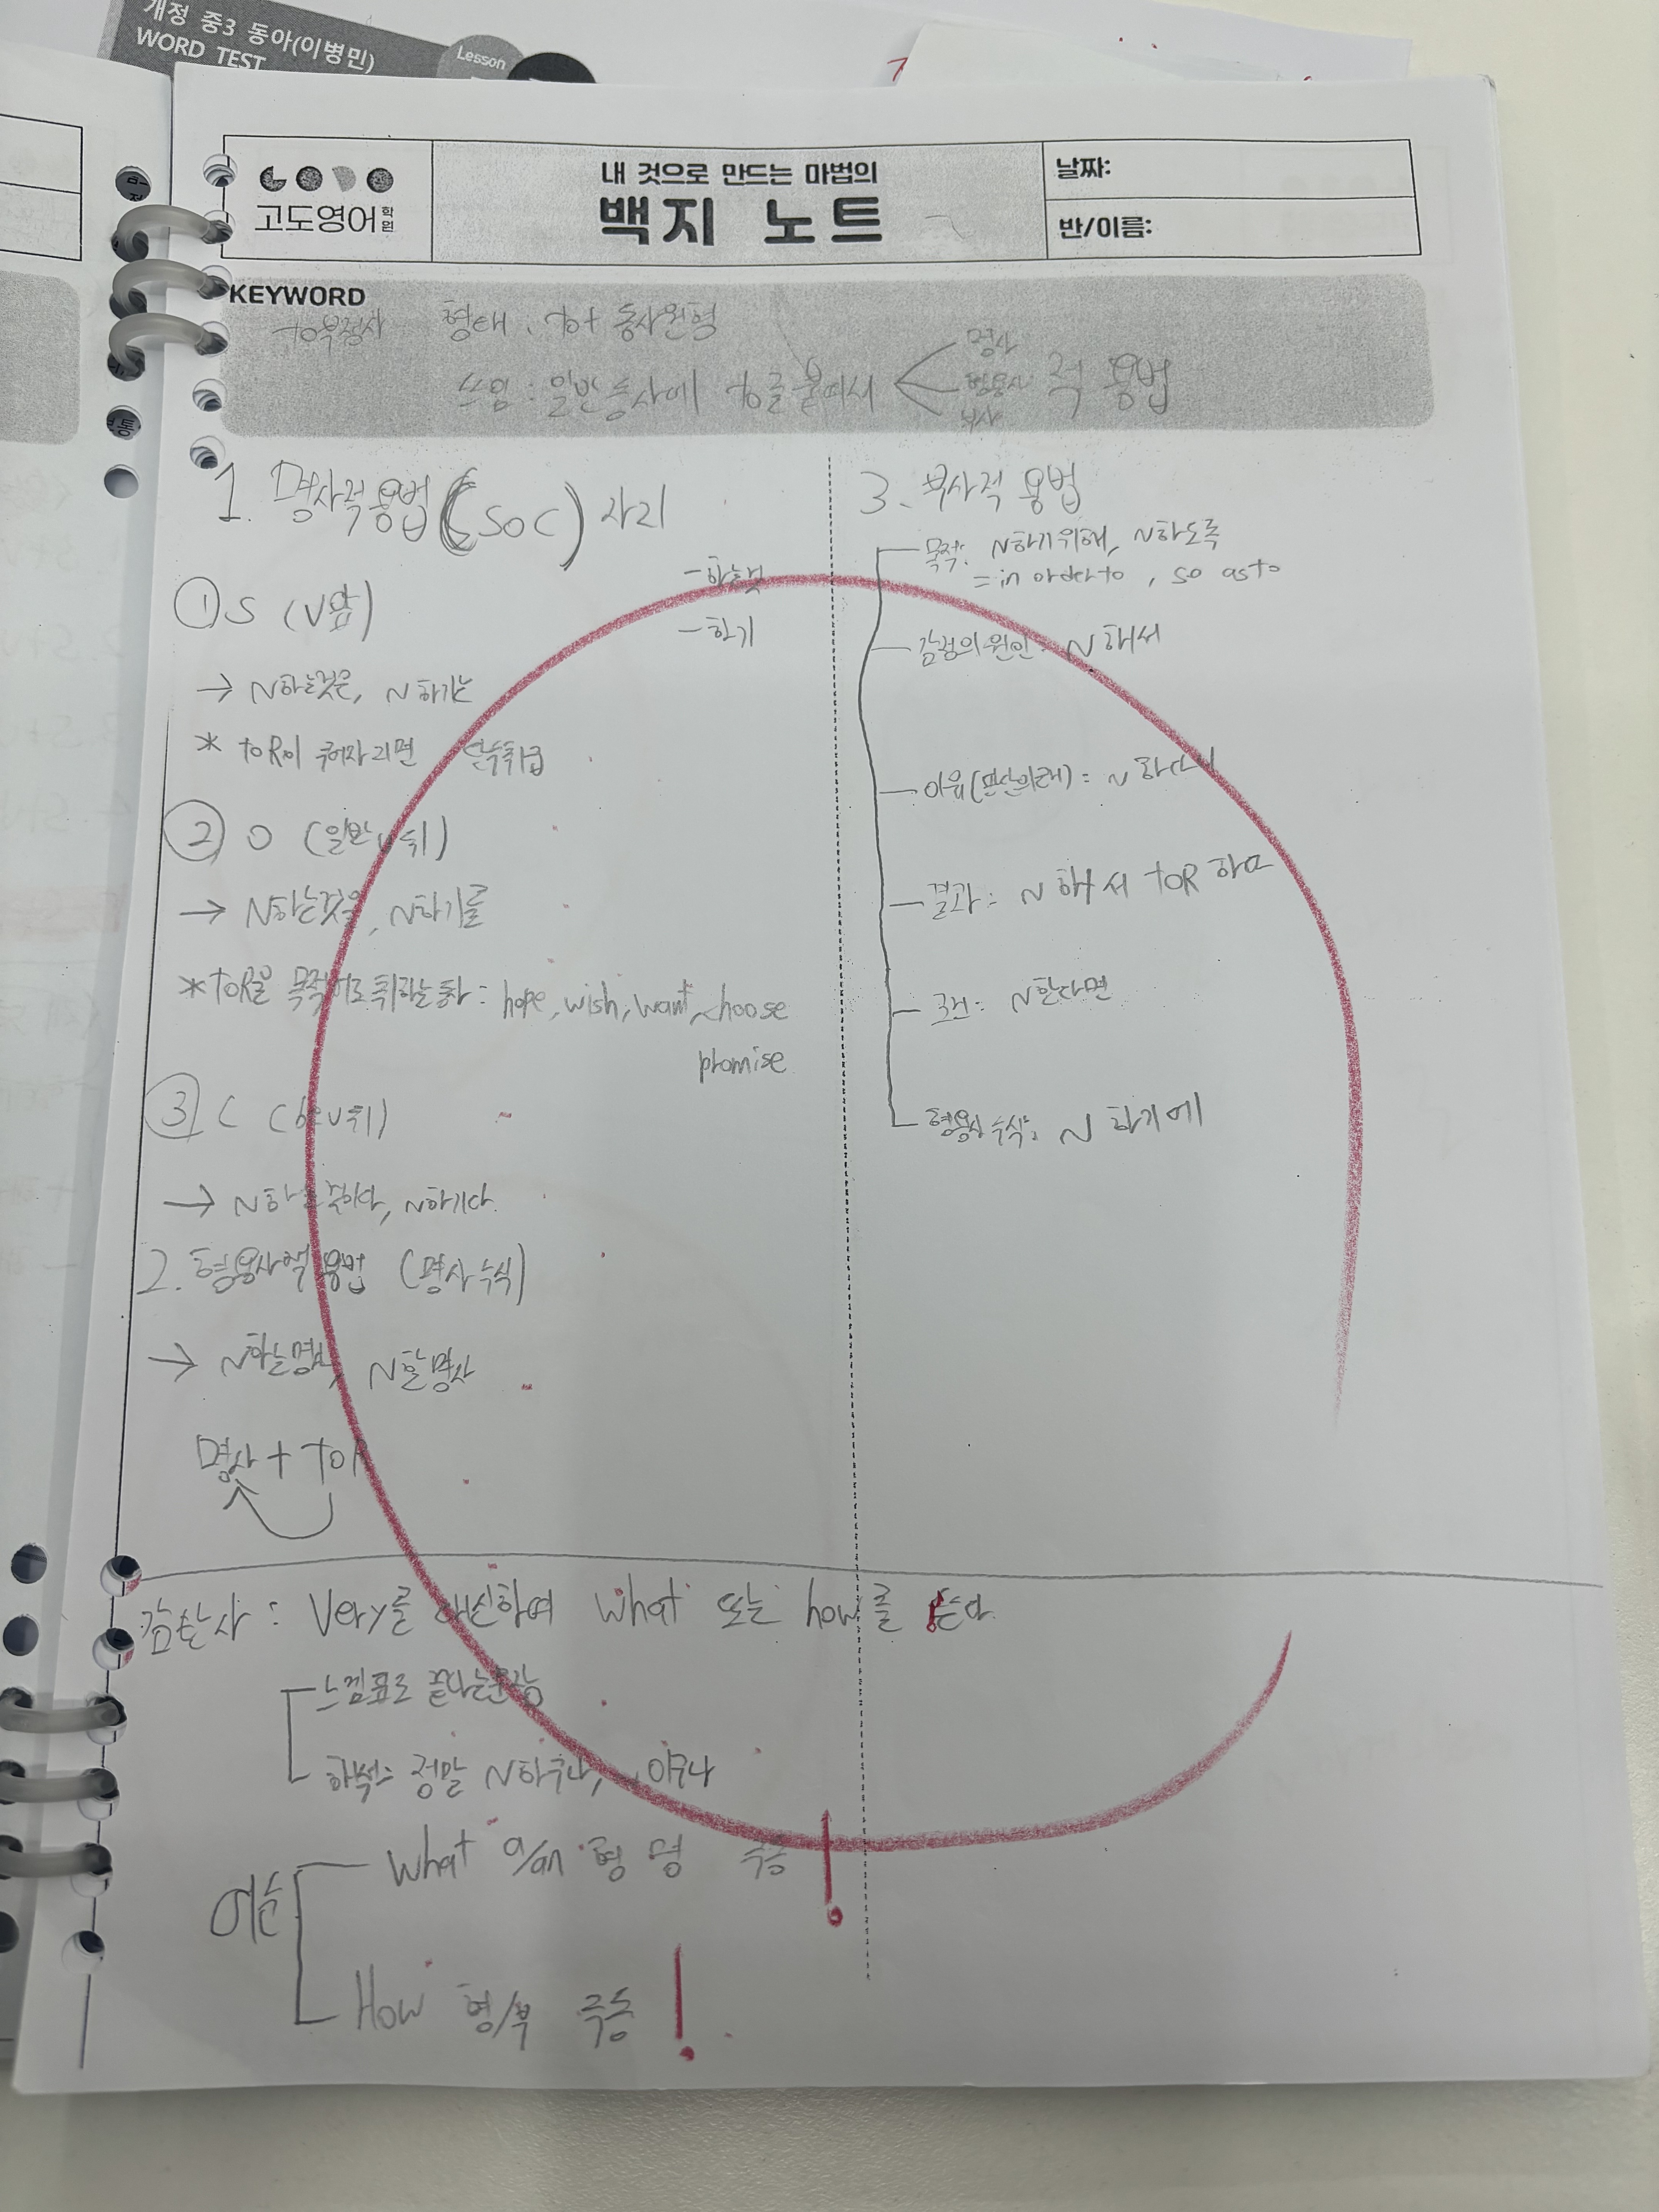 개정 중3 동아(이병민)
WORD TEST
Lesson
고도영어학원
내 것으로 만드는 마법의
백지 노트
날짜:
반/이름:
KEYWORD
to부정사 형태 : to+ 동사원형
쓰임 : 일반동사에 to를 붙여서 명사 형용사 부사 적 용법
1. 명사적용법 (SOC) 자리
-하는것
-하기
① S (V앞)
→ ~하는것은, ~하기는
* toR이 주어자리면 단수취급
② O (일반V뒤)
→ ~하는것을, ~하기를
* toR을 목적어로 취하는 동사 : hope, wish, want, choose
promise
③ C (be V뒤)
→ ~하는 것이다, ~하기다.
2. 형용사적 용법 (명사수식)
→ ~하는명사, ~할명사
명사 + toR
3. 부사적 용법
목적: ~하기위해, ~하도록
= in order to, so as to
감정의 원인 : ~해서
이유(판단의근거) : ~하다니
결과 : ~해서 toR 하다
조건 : ~한다면
형용사 수식 : ~하기에
감탄사 : Very를 대신하여 what 또는 how를 쓴다.
느낌표로 끝나는문장
해석 : 정말 ~하구나, ~이구나
어순
What a/an 형 명 주동 !
How 형/부 주동 !